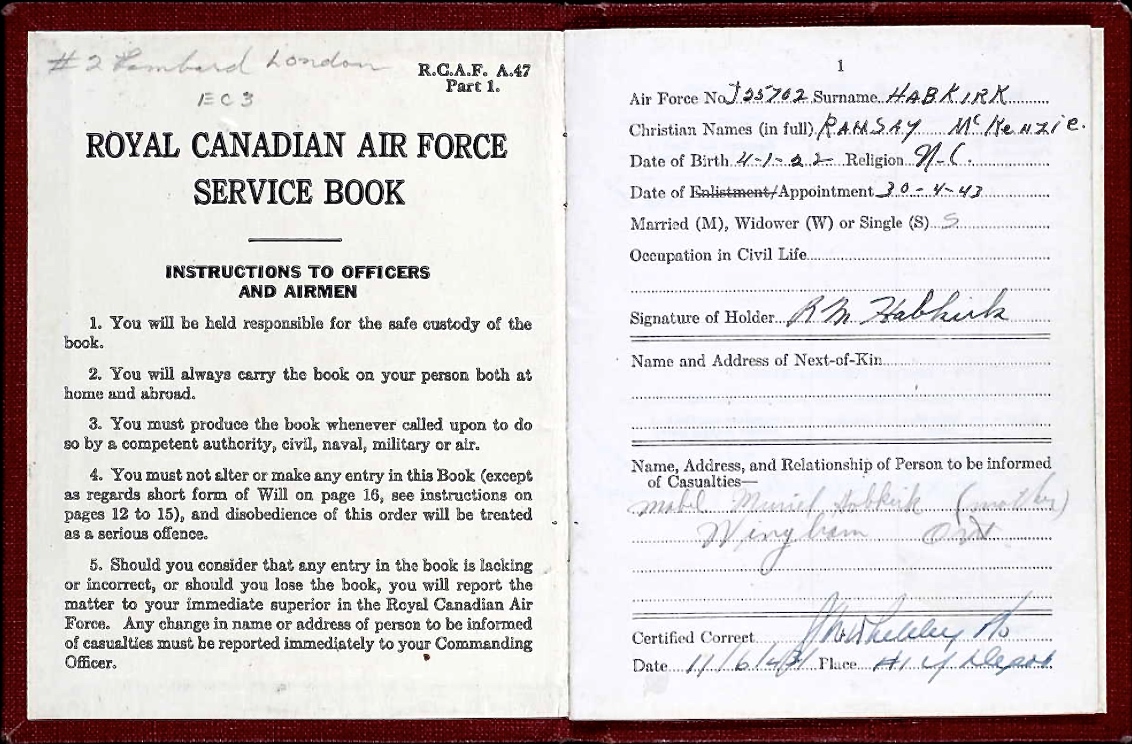 #2 Lombard London
EC3
R.C.A.F. A.47
Part 1.
ROYAL CANADIAN AIR FORCE
SERVICE BOOK
INSTRUCTIONS TO OFFICERS
AND AIRMEN
1. You will be held responsible for the safe custody of the
book.
2. You will always carry the book on your person both at
home and abroad.
3. You must produce the book whenever called upon to do
so by a competent authority, civil, naval, military or air.
4. You must not alter or make any entry in this Book (except
as regards short form of Will on page 16, see instructions on
pages 12 to 15), and disobedience of this order will be treated
as a serious offence.
5. Should you consider that any entry in the book is lacking
or incorrect, or should you lose the book, you will report the
matter to your immediate superior in the Royal Canadian Air
Force. Any change in name or address of person to be informed
of casualties must be reported immediately to your Commanding
Officer.
1
Air Force No. J25702 Surname HABKIRK
Christian Names (in full) RAMSAY McKenzie.
Date of Birth 4-1-22 Religion
Date of Enlistment/Appointment 30-4-43
Married (M), Widower (W) or Single (S) S
Occupation in Civil Life
Signature of Holder R M Habkirk
Name and Address of Next-of-Kin
Name, Address, and Relationship of Person to be informed
of Casualties—
Mabel Muriel Habkirk (mother)
Wingham Ont
Certified Correct
Date Place #1 Y Depot